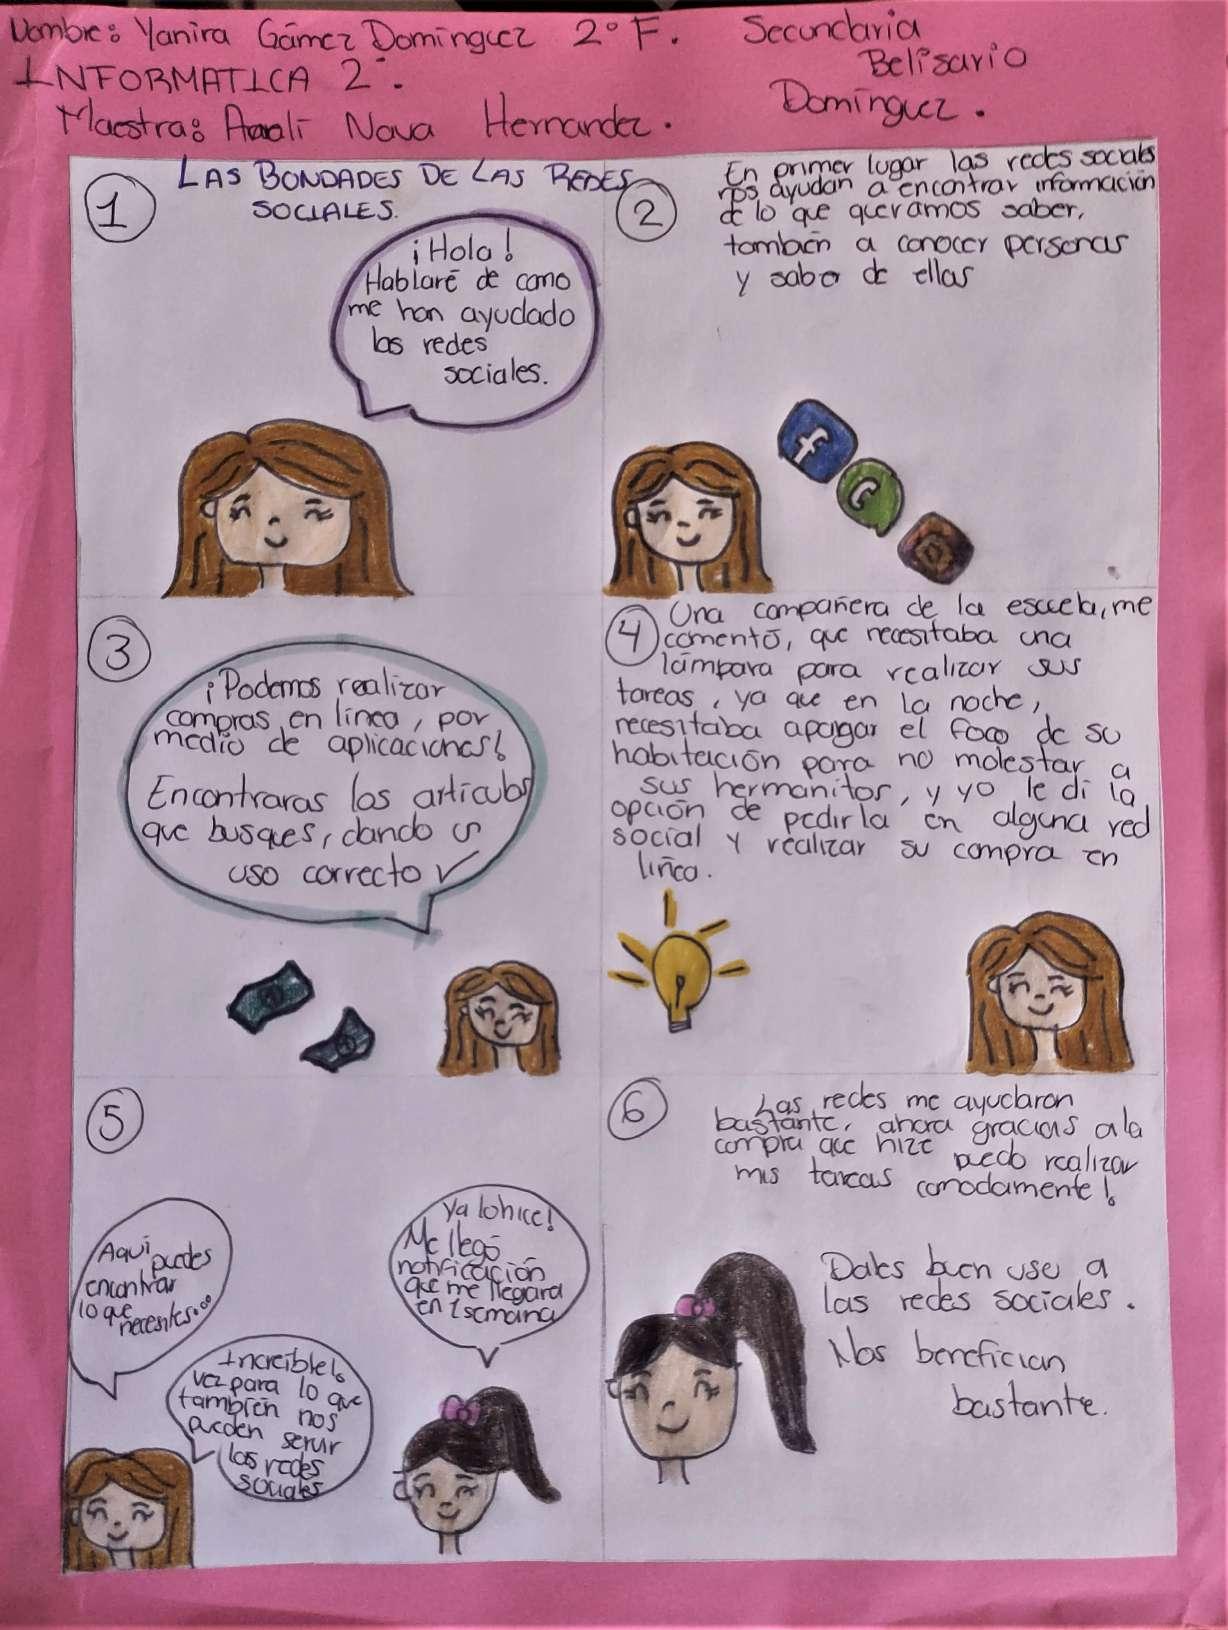 Nombre: Yanira Gámez Domínguez 2° F. Secundaria
Belisario
INFORMATICA 2°.
Domínguez.
Maestra: Nava Hernandez.
LAS BONDADES DE LAS REDES
SOCIALES.
1
¡Hola!
Hablaré de como
me han ayudado
las redes
sociales.
2
En primer lugar las redes sociales
nos ayudan a encontrar información
de lo que queramos saber,
también a conocer personas
y saber de ellas
3
¡Podemos realizar
compras en línea, por
medio de aplicaciones!
Encontraras los artículos
que busques, dando un
uso correcto ✓
4
Una compañera de la escuela, me
comentó, que necesitaba una
lámpara para realizar sus
tareas, ya que en la noche,
necesitaba apagar el foco de su
habitación para no molestar a
sus hermanitos, y yo le di la
opción de pedirla en alguna red
social y realizar su compra en
línea.
5
Aquí puedes
encontrar
lo que
necesites...
Increíble!
vez para lo que
también nos
pueden servir
las redes
sociales
Ya lo hice!
Me llegó
notificación
que me llegara
en 1 semana
6
Las redes me ayudaron
bastante, ahora gracias a la
compra que hize puedo realizar
mis tareas comodamente!
Dales buen uso a
las redes sociales.
Nos benefician
bastante.